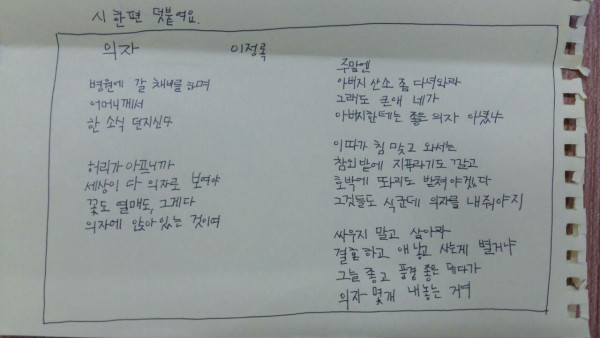 시 한편 덧붙여요.
의자 이정록
병원에 갈 채비를 하며
어머니께서
한 소식 던지신다
허리가 아프니까
세상이 다 의자로 보여야
꽃도 열매도, 그게 다
의자에 앉아 있는 것이여
주말엔
아버지 산소 좀 다녀와라
그래도 큰애 네가
아버지한테는 좋은 의자 아녔냐
이따가 침 맞고 와서는
참외밭에 지푸라기도 깔고
호박에 똬리도 받쳐야겠다
그것들도 식군데 의자를 내줘야지
싸우지 말고 살아라
결혼하고 애 낳고 사는게 별거냐
그늘 좋고 풍경 좋은 데다가
의자 몇개 내놓는 거여